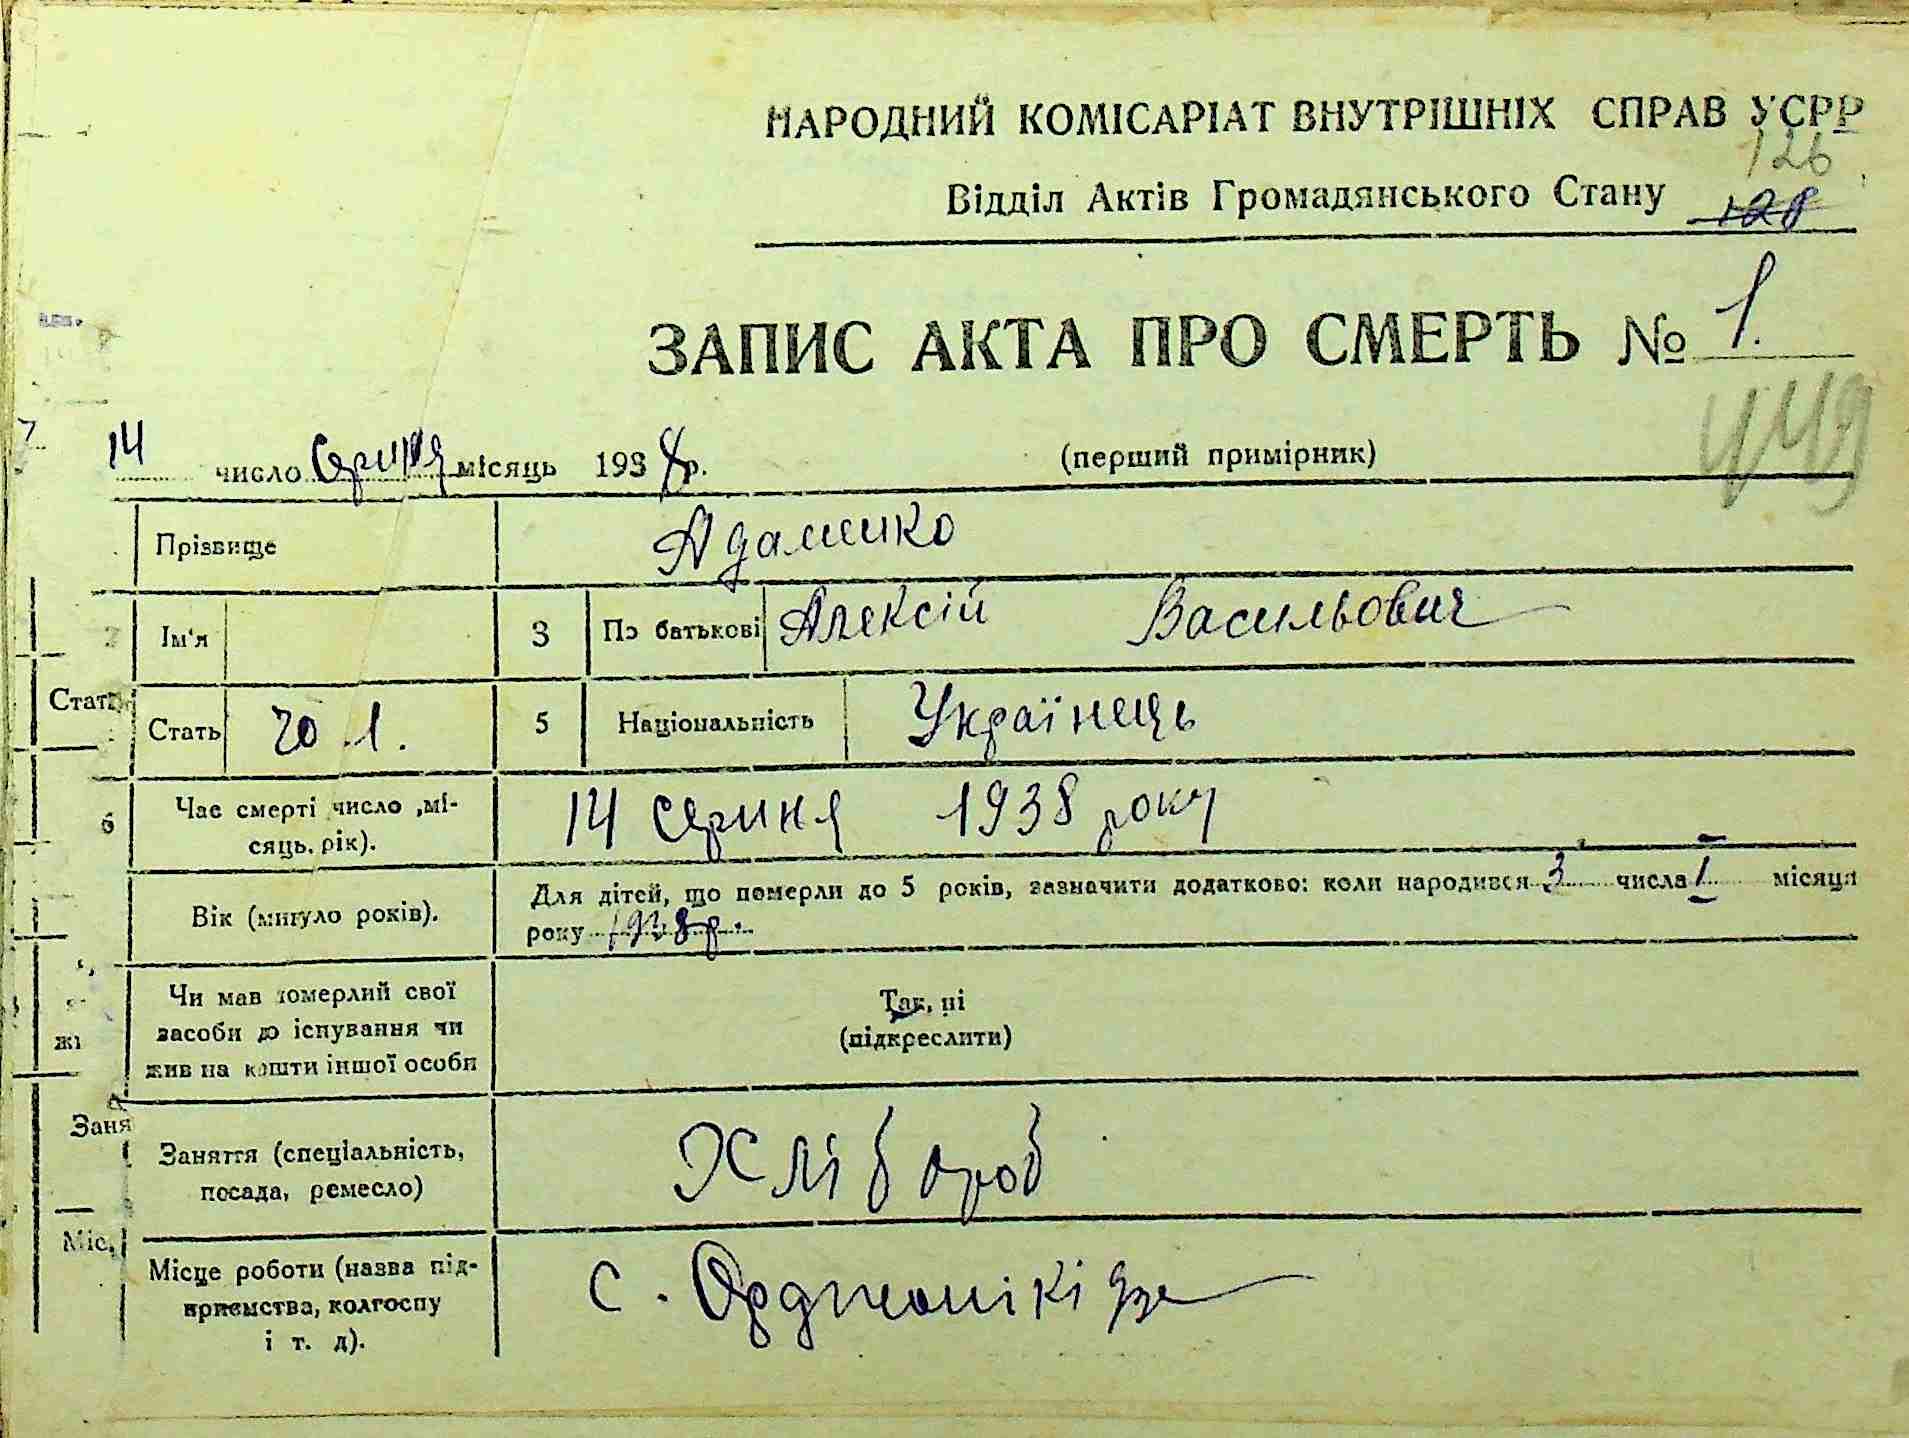 НАРОДНИЙ КОМІСАРІАТ ВНУТРІШНІХ СПРАВ УСРР
126
Відділ Актів Громадянського Стану 128
ЗАПИС АКТА ПРО СМЕРТЬ № 1.
14 число Серпня місяць 1938 р. (перший примірник)
Прізвище Адаменко
2 Ім'я 3 По батькові Алексій Васильович
Стать
Стать ч0 .1. 5 Національність Українець
6 Час смерті число ,мі-
сяць. рік). 14 серпня 1938 року
Вік (минуло років). Для дітей, що померли до 5 років, зазначити додатково: коли народився 3 числа I місяця
року 1938р.
Чи мав померлий свої
засоби до існування чи
жив на кошти іншої особи
Так, ні
(підкреслити)
Заня
Заняття (спеціальність,
посада, ремесло) Хлібороб
Міс
Місце роботи (назва під-
приємства, колгоспу
і т. д). с. Орджонікідзе